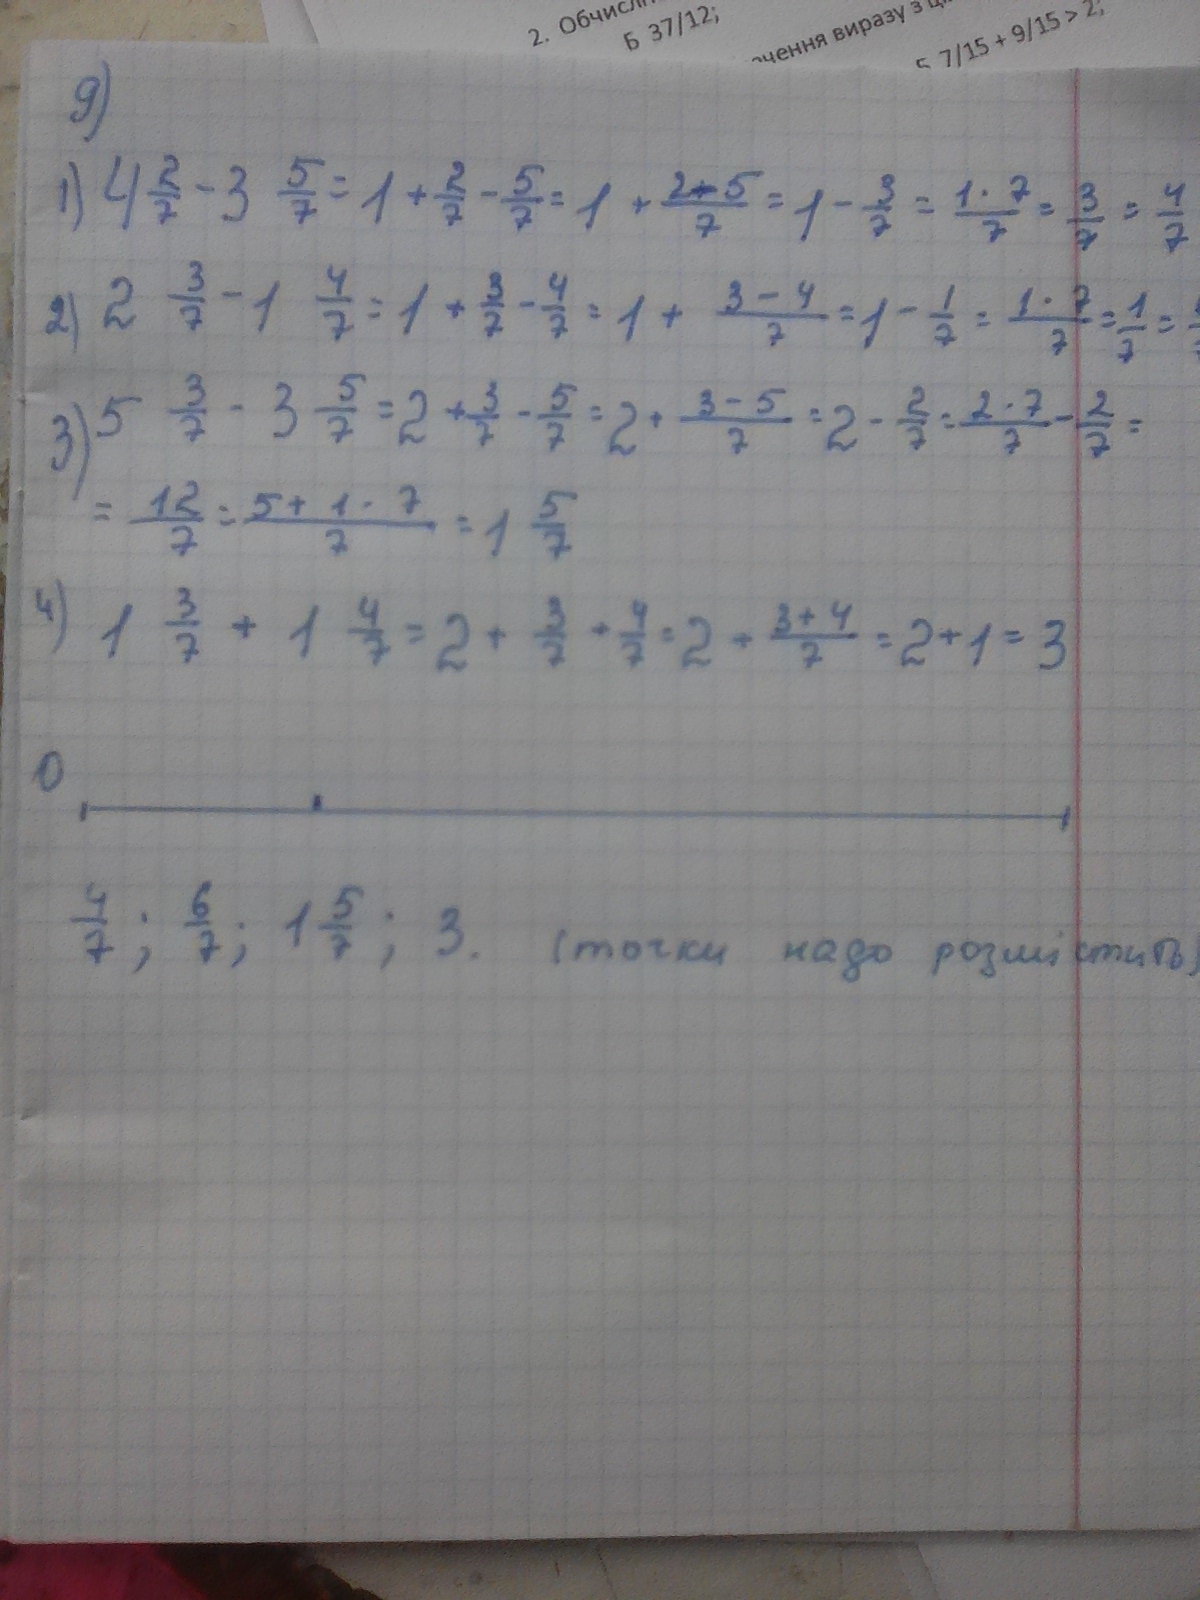 2. Обчисл
Б 37/12;
чення виразу з ці
Б 7/15 + 9/15 > 2;
9)
1) 4 2/7 - 3 5/7 = 1 + 2/7 - 5/7 = 1 + (2-5)/7 = 1 - 3/7 = (1·7)/7 = 3/7 = 4/7
2) 2 3/7 - 1 4/7 = 1 + 3/7 - 4/7 = 1 + (3-4)/7 = 1 - 1/7 = (1·7)/7 = 1/7 =
3) 5 3/7 - 3 5/7 = 2 + 3/7 - 5/7 = 2 + (3-5)/7 = 2 - 2/7 = (2·7)/7 - 2/7 =
= 12/7 = (5+1·7)/7 = 1 5/7
4) 1 3/7 + 1 4/7 = 2 + 3/7 + 4/7 = 2 + (3+4)/7 = 2+1 = 3
0
4/7; 6/7; 1 5/7; 3. (точки надо розмістить)